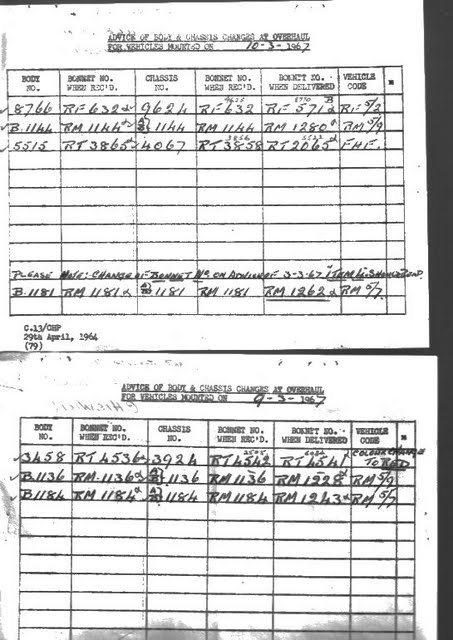 ADVICE OF BODY & CHASSIS CHANGES AT OVERHAUL
FOR VEHICLES MOUNTED ON 10-3-1967
BODY NO. BONNET NO. WHEN REC'D. CHASSIS NO. BONNET NO. WHEN REC'D. BONNET NO. WHEN DELIVERED VEHICLE CODE
8766 RF 632 9624 RF 632 RF 571 RF 5/2
B.1144 RM 1144 1144 RM 1144 RM 1280 RM 5/9
5515 RT 3865 4067 RT 3858 RT 2065
PLEASE NOTE: CHANGE OF BONNET No. ON ADVICE OF 3-3-67 ITEM
B.1181 RM 1181 1181 RM 1181 RM 1262 RM 5/7
C.13/CHP
29th April, 1964
(79)
ADVICE OF BODY & CHASSIS CHANGES AT OVERHAUL
FOR VEHICLES MOUNTED ON 9-3-1967
BODY NO. BONNET NO. WHEN REC'D. CHASSIS NO. BONNET NO. WHEN REC'D. BONNET NO. WHEN DELIVERED VEHICLE CODE
3458 RT 4536 3924 RT 4542 RT 4541 COLOUR CHANGE TO RED
B.1136 RM.1136 1136 RM 1136 RM 1228 RM 5/9
B.1184 RM 1184 1184 RM 1184 RM 1243 RM 5/7